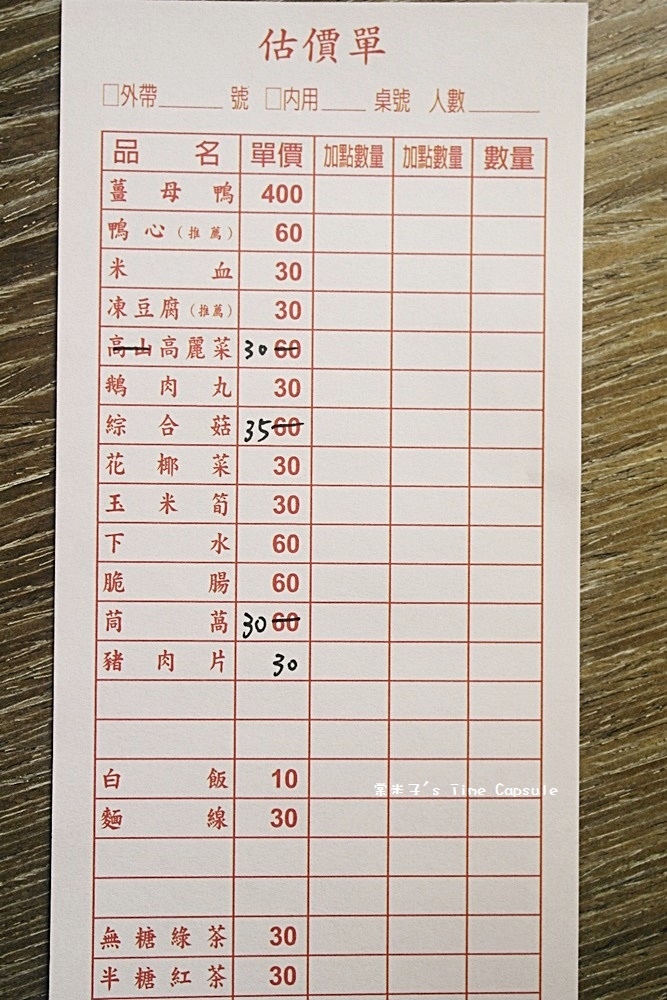 估價單
□外帶______ 號 □內用____ 桌號 人數______
品名 單價 加點數量 加點數量 數量
薑母鴨 400
鴨心(推薦) 60
米血 30
凍豆腐(推薦) 30
高山高麗菜 30 60
鵝肉丸 30
綜合菇 35 60
花椰菜 30
玉米筍 30
下水 60
脆腸 60
茼萵 30 60
豬肉片 30
白飯 10
常半子's Time Capsule
麵線 30
無糖綠茶 30
半糖紅茶 30